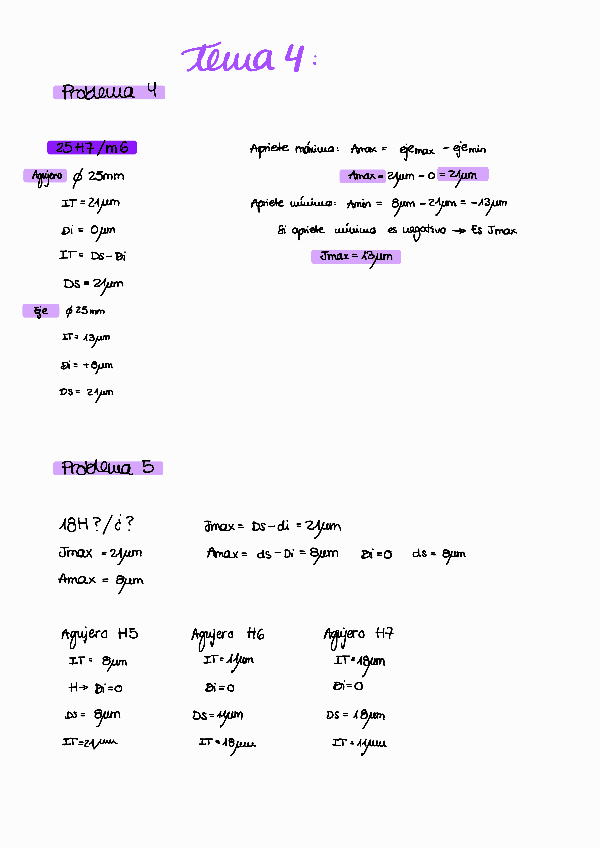 Tema 4:
Problema 4
25 H7/m6
Agujero ϕ 25mm
IT = 21μm
Di = 0μm
IT = Ds - Di
DS = 21μm
Eje ϕ 25mm
IT = 13μm
Di = +8μm
DS = 21μm
Apriete máximo: Amax = ejemax - ejemin
Amax = 21μm - 0 = 21μm
Apriete mínimo: Amin = 8μm - 21μm = -13μm
Si apriete mínimo es negativo → Es Jmax
Jmax = 13μm
Problema 5
18H ? / ¿ ?
Jmax = 21μm
Amax = 8μm
Jmax = Ds - di = 21μm
Amax = ds - Di = 8μm Di = 0 ds = 8μm
Agujero H5
IT = 8μm
H → Di = 0
Ds = 8μm
IT = 21μm
Agujero H6
IT = 11μm
Di = 0
DS = 11μm
IT = 18μm
Agujero H7
IT = 18μm
Di = 0
DS = 18μm
IT = 11μm